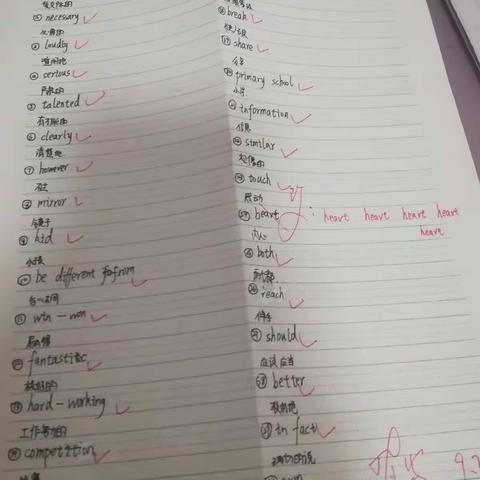 ② necessary ✓
③ loudly ✓
④ serious ✓
⑤ talented ✓
⑥ clearly ✓
清楚地
⑦ however ✓
⑧ mirror ✓
镜子
⑨ kid ✓
小孩
⑩ be different from
与……不同
⑪ win-win
⑫ fantastic
极好的
⑬ hard-working
工作努力的
⑭ competition
break
share
分享
primary school
小学
information
信息
similar
touch
感动
heart : heart heart heart heart
heart
内心
both
reach
伸手
should
应该 应当
better
较好地
in fact